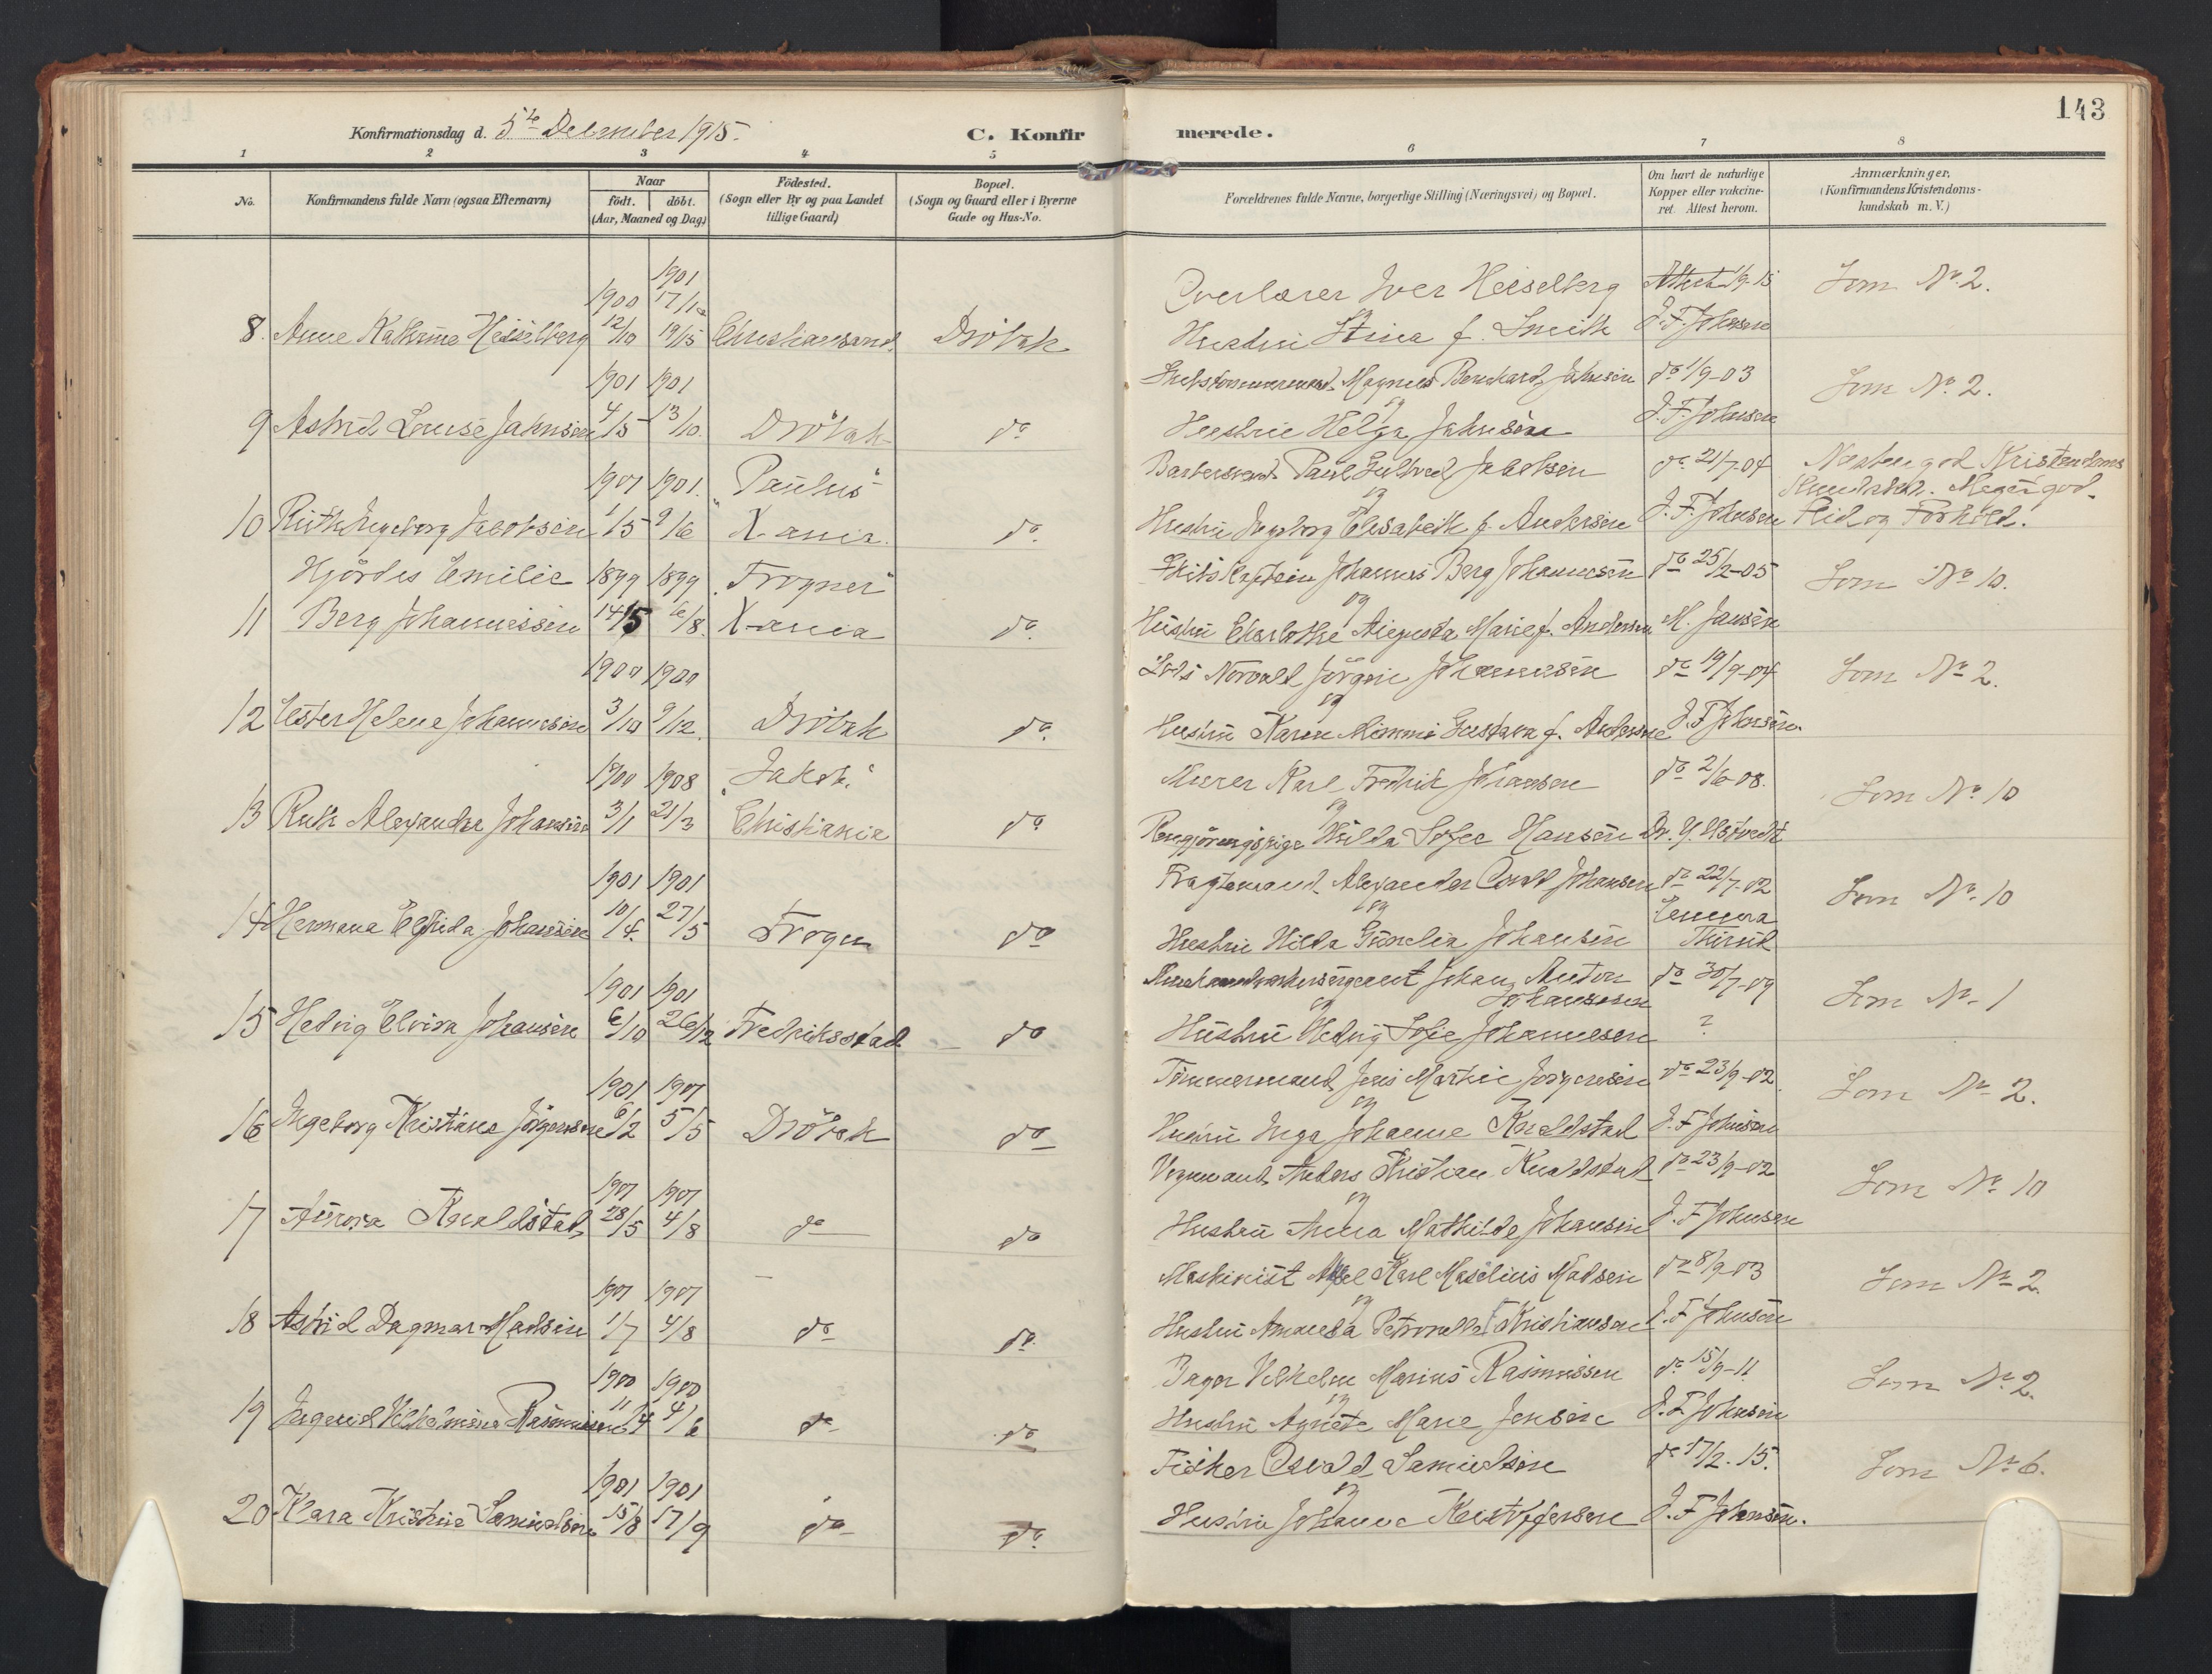 143
Konfirmationsdag d. 5te December 1915.
C. Konfirmerede.
1 2 3 4 5 6 7 8
No.
Konfirmandens fulde Navn (ogsaa Efternavn)
Naar
födt. döbt.
(Aar, Maaned og Dag)
Födested.
(Sogn eller By og paa Landet
tillige Gaard)
Bopæl.
(Sogn og Gaard eller i Byerne
Gade og Hus-No.
Forældrenes fulde Navne, borgerlige Stilling (Næringsvei) og Bopæl.
Om havt de naturlige
Kopper eller vakcine-
ret. Attest herom.
Anmærkninger.
(Konfirmandens Kristendoms-
kundskab m. V.)
1901
1900 17/12 Overlærer Iver Heiselberg Attest 1/9-15 Som No 2.
8. Anne Kathrine Heiselberg 12/10 19/15 Christiansand. Dröbak
og
Hustru Stina f. Smith J. F. Johnsen
1901 1901 Magnus Bernhard Jahnsen do 1/9-03 Som No 2.
9 Astrid Louise Jahnsen 4/5 13/10. Dröbak do
og
Hustru Helga Jahnsen J. F. Johnsen
1901 1901. "Paulus" Paul Gultved Jakobsen do 21/7-04 Næsten god Kristendoms
kundskab. Meget god
10 Ruth Ingeborg Jacobsen 1/5 9/6 X-ania. do
og
Hustru Ingeborg Elisabeth f. Andersen J. F. Johnsen Flid og Forhold.
Hjördis Emilie 1899 1899 "Frogner" Skibskaptein Johannes Berg Johannesen do 25/2-05 Som No 10.
11 Berg Johannessen 14/5 6/8. X-ania do
og
Hustru Charlotte Augusta Marie f. Andersen M. Jansen
1900 1900 Lods Norvald Jörgen Johannesen do 19/9-04 Som No 2.
12 Ester Helene Johannesen 3/10 9/12. Dröbak do
og
Hustru Karen Mimmi Gustava f. Andersen J. F. Johnsen.
1900 1908 "Jakob" Murer Karl Fredrik Johansen do 2/6-08. Som No 10
13 Ruth Alexandra Johansen 3/1 21/3 Christiania do
og
Rengjöringspige Hilda Sofie Hansen
1901 1901 Fragtemand Alexander Johansen do 22/7-02 Som No 10
14 Hermana Elfrida Johansen 10/4. 27/5 Frogn do
og
Hustru Hilda Johansen
1901 1901 Johan Anton
Johannesen do 30/7-09 Som No 1
15 Hedvig Elvira Johansen 6/10 26/12 Fredriksstad do
og
Hustru Hedvig Sofie Johannesen ?
1901 1901 Tömmermand Jens Martin Jörgensen do 23/9-02 Som No 2.
16 Ingeborg Kristiane Jörgensen 6/2 5/5 Dröbak do
og
Hustru Inga Johanne Knaldstad J. F. Johnsen
1901 1901 Vognmand Anders Kristian Knaldstad do 23/9-02 Som No 10
17 Aurora Knaldstad 28/5 4/8 do do
og
Hustru Anna Mathilde Johansen J. F. Johnsen
1901 1901 Maskinist Axel Karl Maselius Madsen do 8/9-03 Som No 2.
18 Astrid Dagmar Madsen 1/7 4/8 do do
og
Hustru Amanda Petronella Kristiansen J. F. Johnsen
1900 1900 Bager Vilhelm Marius Rasmussen do 15/9-11 Som No 2.
19 Ingerid Vilhelmine Rasmussen 11/4 4/6 do do
og
Hustru Agnete Marie Jensen J. F. Johnsen
1901 1901 Fisker Osvald Samuelsen do 17/2-15. Som No 6.
20. Klara Kristine Samuelsen 15/8 17/9 do do
og
Hustru Johanne Kristoffersen J. F. Johnsen.